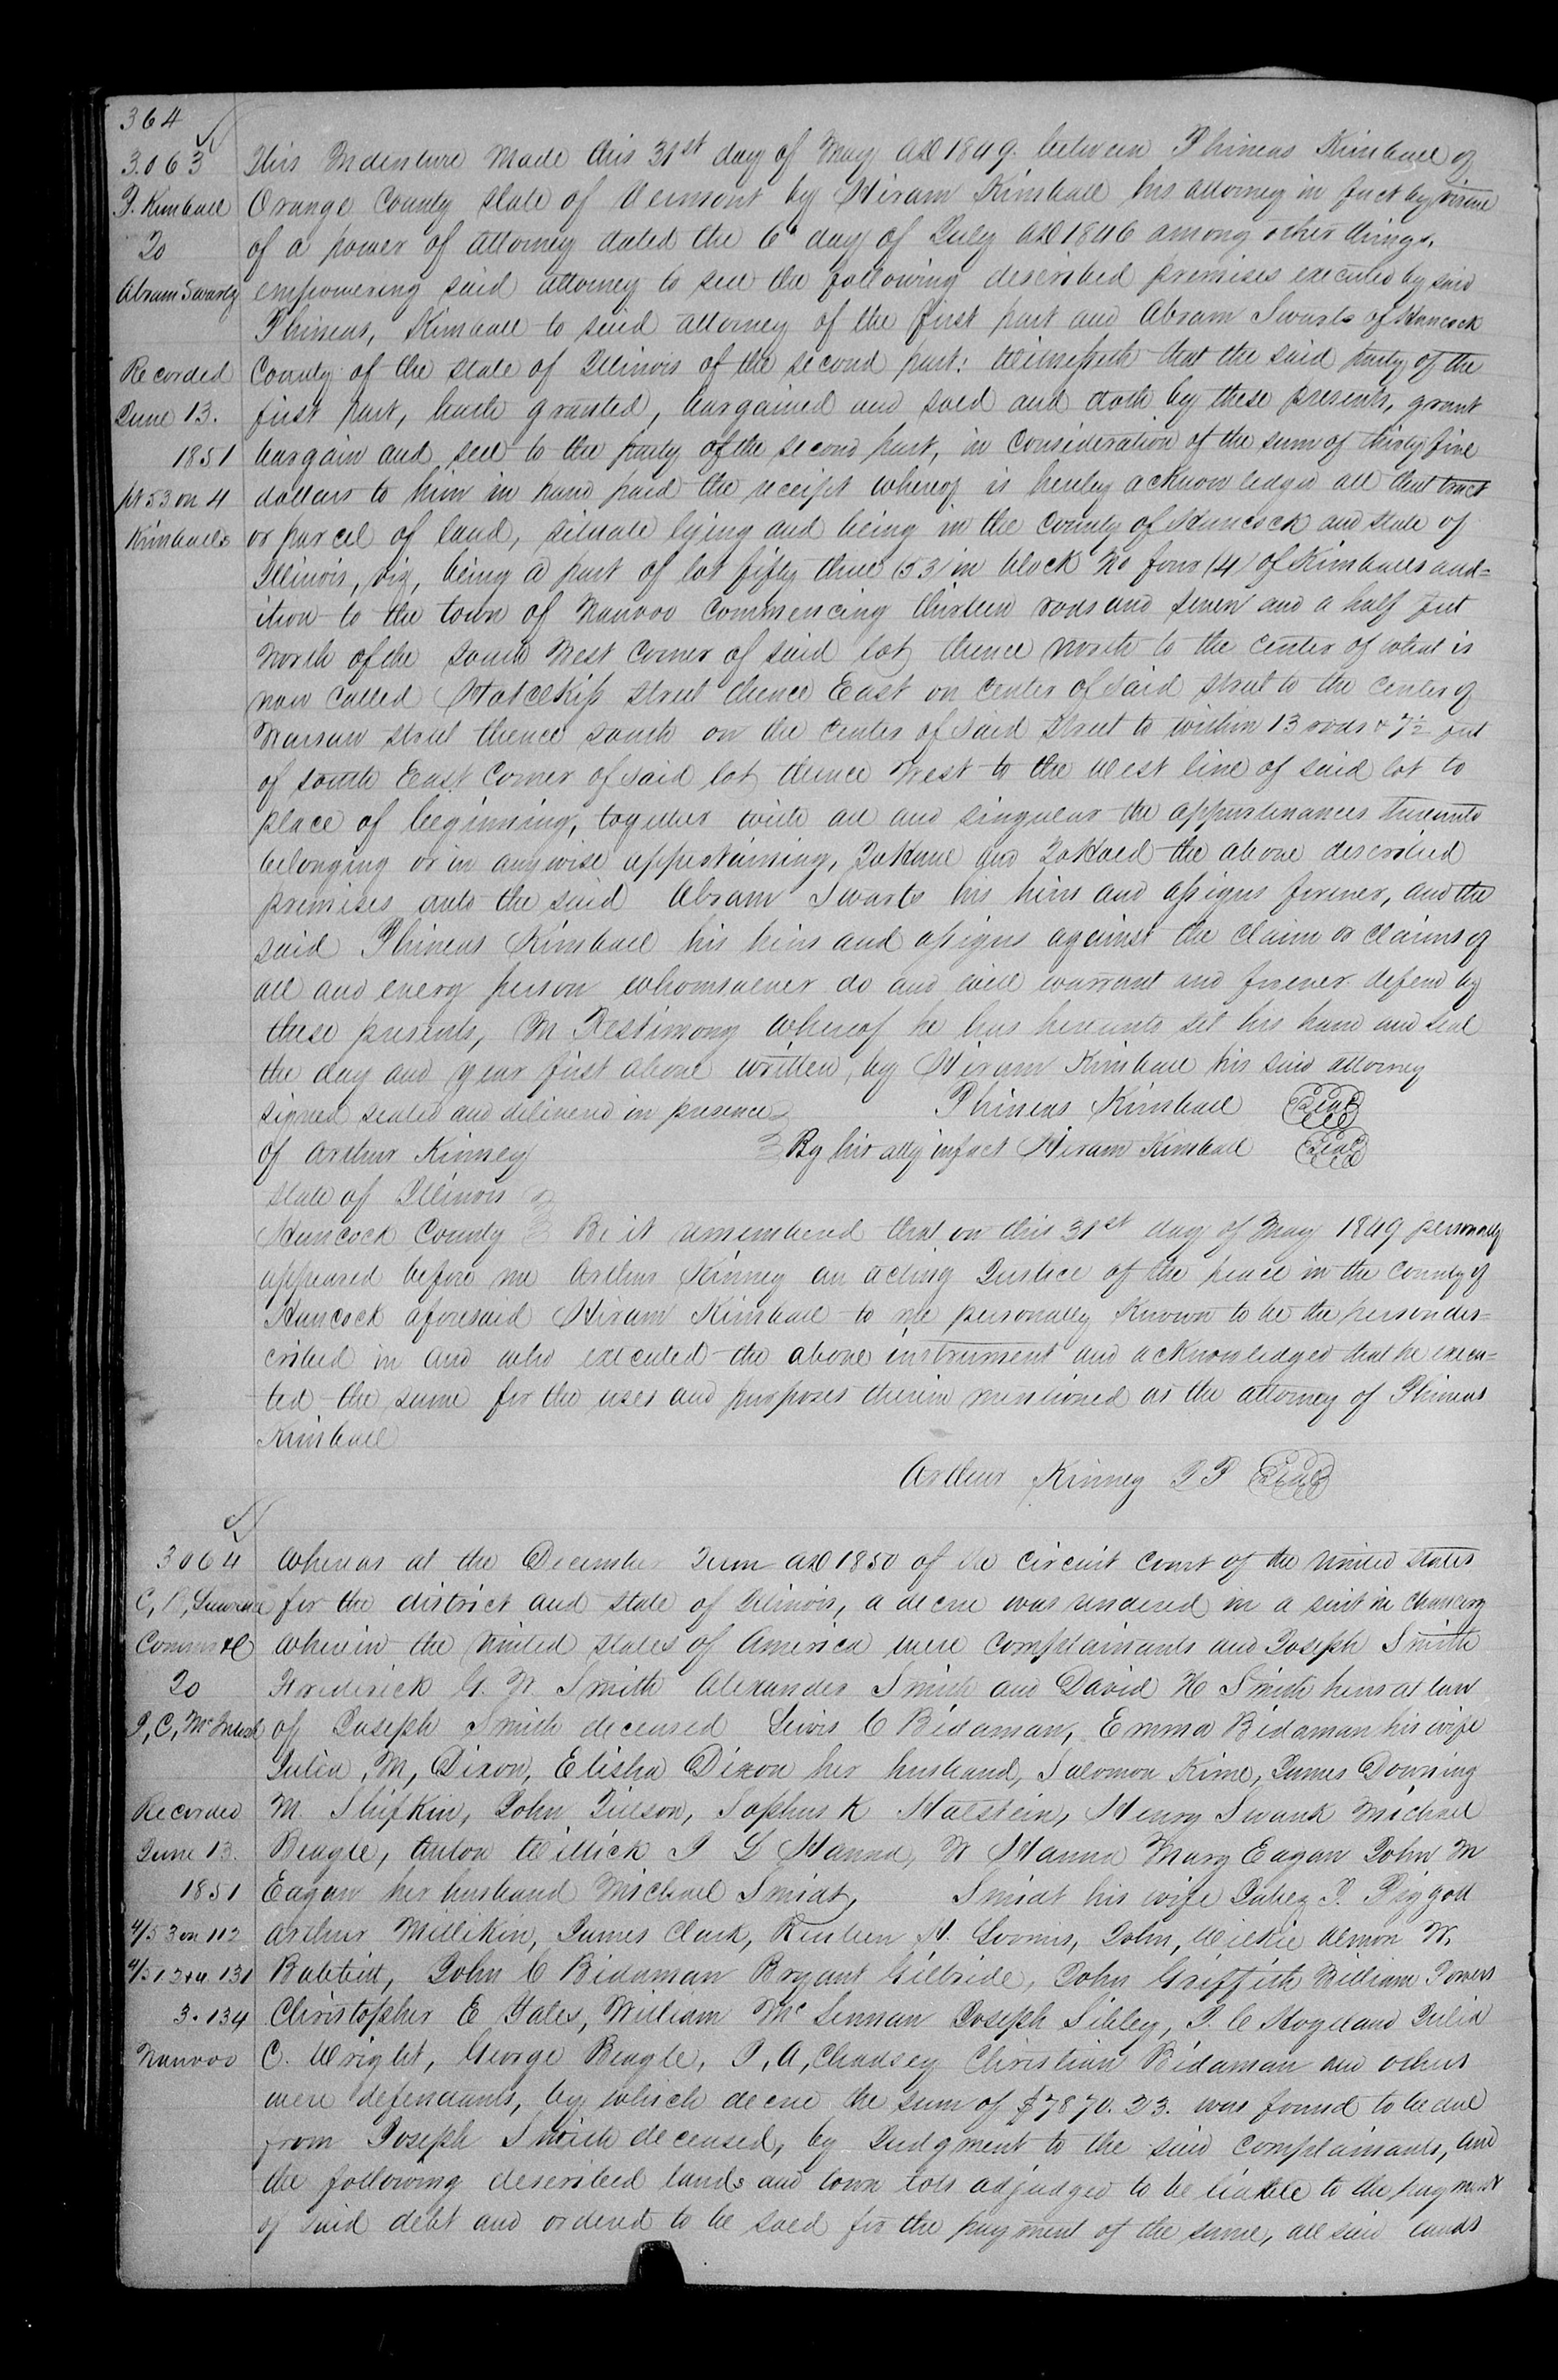 364
3063
P. Kimball
To
Abram Swartz
Recorded
June 13.
1851
pt 53 on 4
Kimballs
This Indenture Made this 31st day of May AD 1849. between Phineas Kimball of
Orange County State of Vermont by Hiram Kimball his attorney in fact by virtue
of a power of attorney dated the 6th day of July AD 1846 among other things,
empowering said attorney to sell the following described premises executed by said
Phineas, Kimball to said attorney of the first part and Abram Swarts of Hancock
County of the State of Illinois of the second part: Witnesseth that the said party of the
first part, hath granted, bargained and sold and doth by these presents, grant
bargain and sell to the party of the second part, in consideration of the sum of thirty five
dollars to him in hand paid the receipt whereof is hereby acknowledged all that tract
or parcel of land, situate lying and being in the County of Hancock and State of
Illinois, viz, being a part of lot fifty three (53) in block No four (4) of Kimballs add=
ition to the town of Nauvoo Commencing thirteen rods and seven and a half feet
North of the South West Corner of said lot thence North to the center of what is
now called Hotchkiss street thence East on center of said street to the center of
Warsaw street thence south on the center of said street to within 13 rods & 7½ feet
of south East Corner of said lot thence West to the West line of said lot to
place of beginning, together with all and singular the appurtenances thereunto
belonging or in anywise appertaining, To Have and To Hold the above described
premises unto the said Abram Swarts his heirs and assigns forever, and the
said Phineas Kimball his heirs and assigns against the claim or claims of
all and every person whomsoever do and will warrant and forever defend by
these presents, In Testimony whereof he has hereunto set his hand and seal
the day and year first above written, by Hiram Kimball his said attorney
signed sealed and delivered in presence Phineas Kimball Seal
of Arthur Kinney By his atty in fact Hiram Kimball Seal
State of Illinois
Hancock County Be it remembered that on this 31st day of May 1849 personally
appeared before me Arthur Kinney an acting Justice of the peace in the County of
Hancock aforesaid Hiram Kimball to me personally Known to be the person des=
cribed in and who executed the above instrument and acknowledged that he execu=
ted the same for the uses and purposes therein mentioned as the attorney of Phineas
Kimball
Arthur Kinney J P Seal
3064
Comms &C
To
Recorded
June 13.
1851
4/53 on 112
3. 134
Nauvoo
Whereas at the December Term AD 1850 of the circuit court of the United States
for the district and state of Illinois, a decree was rendered in a suit in chancery
wherein the United States of America were complainants and Joseph Smith
Frederick G. W. Smith Alexander Smith and David H Smith heirs at law
of Joseph Smith deceased Lewis C Bidaman, Emma Bidaman his wife
Julia, M, Dixon, Elisha Dixon her husband, Solomon Kime, James Downing
M. Slifkin, John Tilson, Sophus K Halstein, Henry Swank Michael
Beagle, Anton Willick J L Hanna, W Hanna Mary Eagan John M
Eagan her husband Michael Smidt, Smidt his wife Jabez J. Piggott
Arthur Millikin, James Clark, Reuben H. Loomis, John, Wilkie Almon W.
Babbitt, John C Bidaman Bryant Gilbride, John Griffith William Powers
Christopher E Yates, William Mc Lennan Joseph Sibley, J. C Hogland Julia
C. Wright, George Beagle, J, A, Chadsey Christian Bidaman and others
were defendants, by which decree the sum of $7870.23. was found to be due
from Joseph Smith deceased, by Judgment to the said complainants, and
the following described lands and town lots adjudged to be liable to the payment
of said debt and ordered to be sold for the payment of the same, all said lands